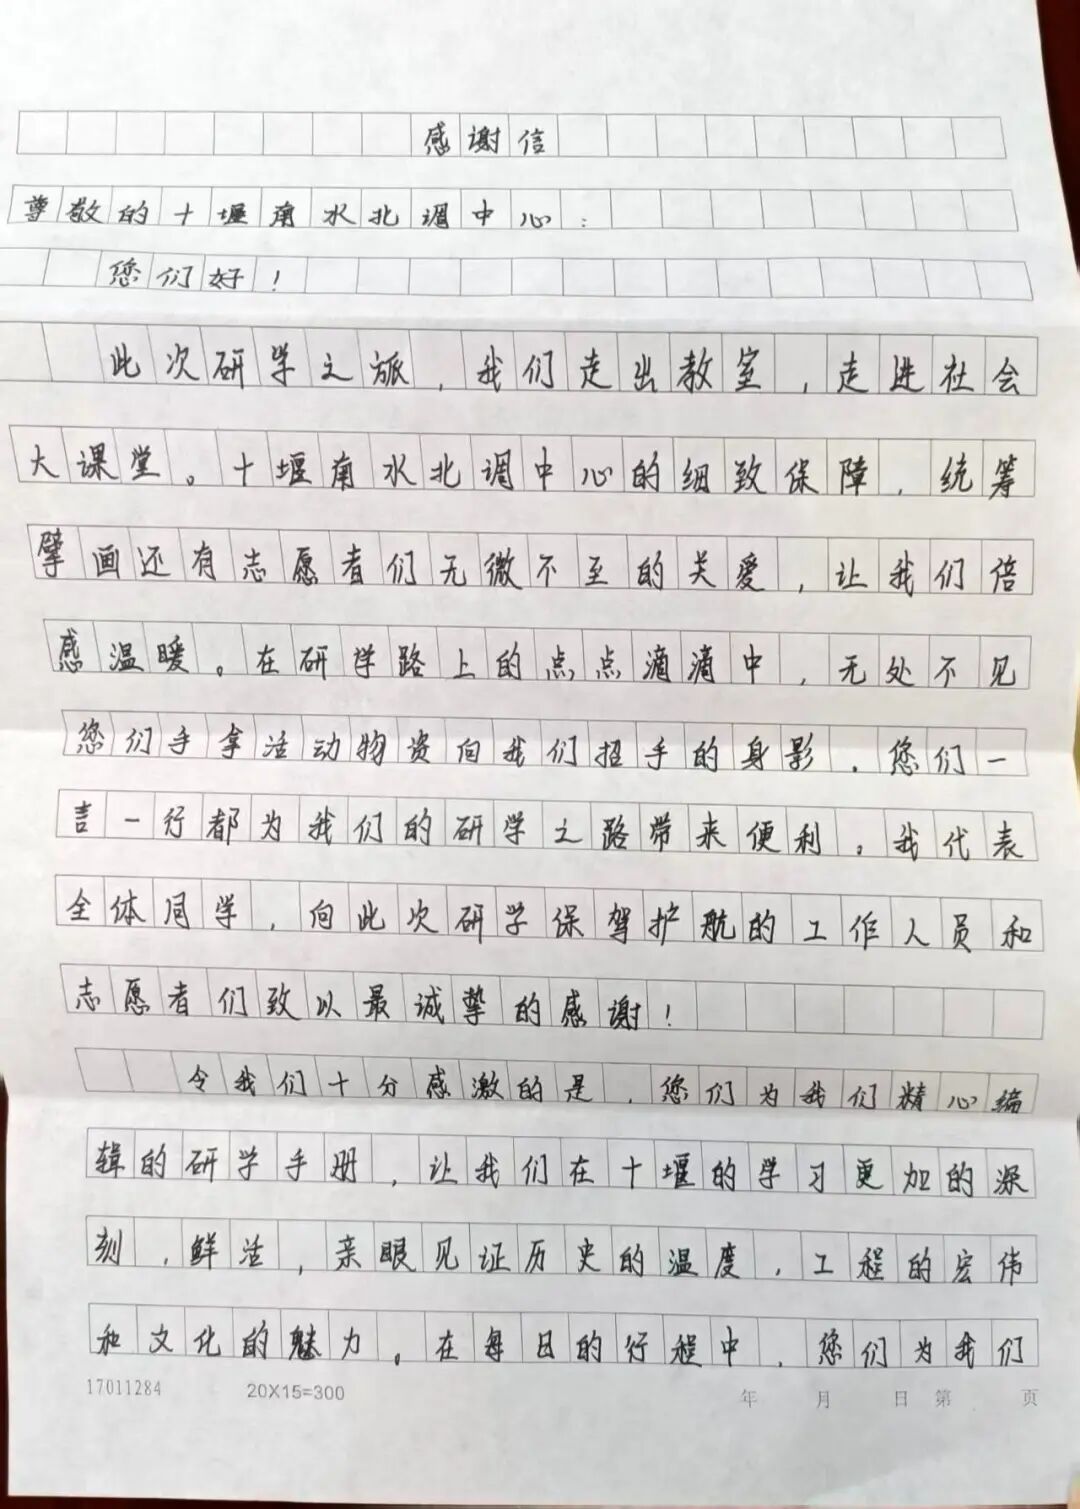 感谢信
尊敬的十堰南水北调中心：
您们好！
此次研学之旅，我们走出教室，走进社会
大课堂。十堰南水北调中心的细致保障，统筹
擘画还有志愿者们无微不至的关爱，让我们倍
感温暖。在研学路上的点点滴滴中，无处不见
您们手拿活动物资向我们招手的身影。您们一
言一行都为我们的研学之路带来便利。我代表
全体同学，向此次研学保驾护航的工作人员和
志愿者们致以最诚挚的感谢！
令我们十分感激的是，您们为我们精心编
辑的研学手册，让我们在十堰的学习更加的深
刻，鲜活，亲眼见证历史的温度，工程的宏伟
和文化的魅力。在每日的行程中，您们为我们
17011284 20X15=300 年 月 日 第 页